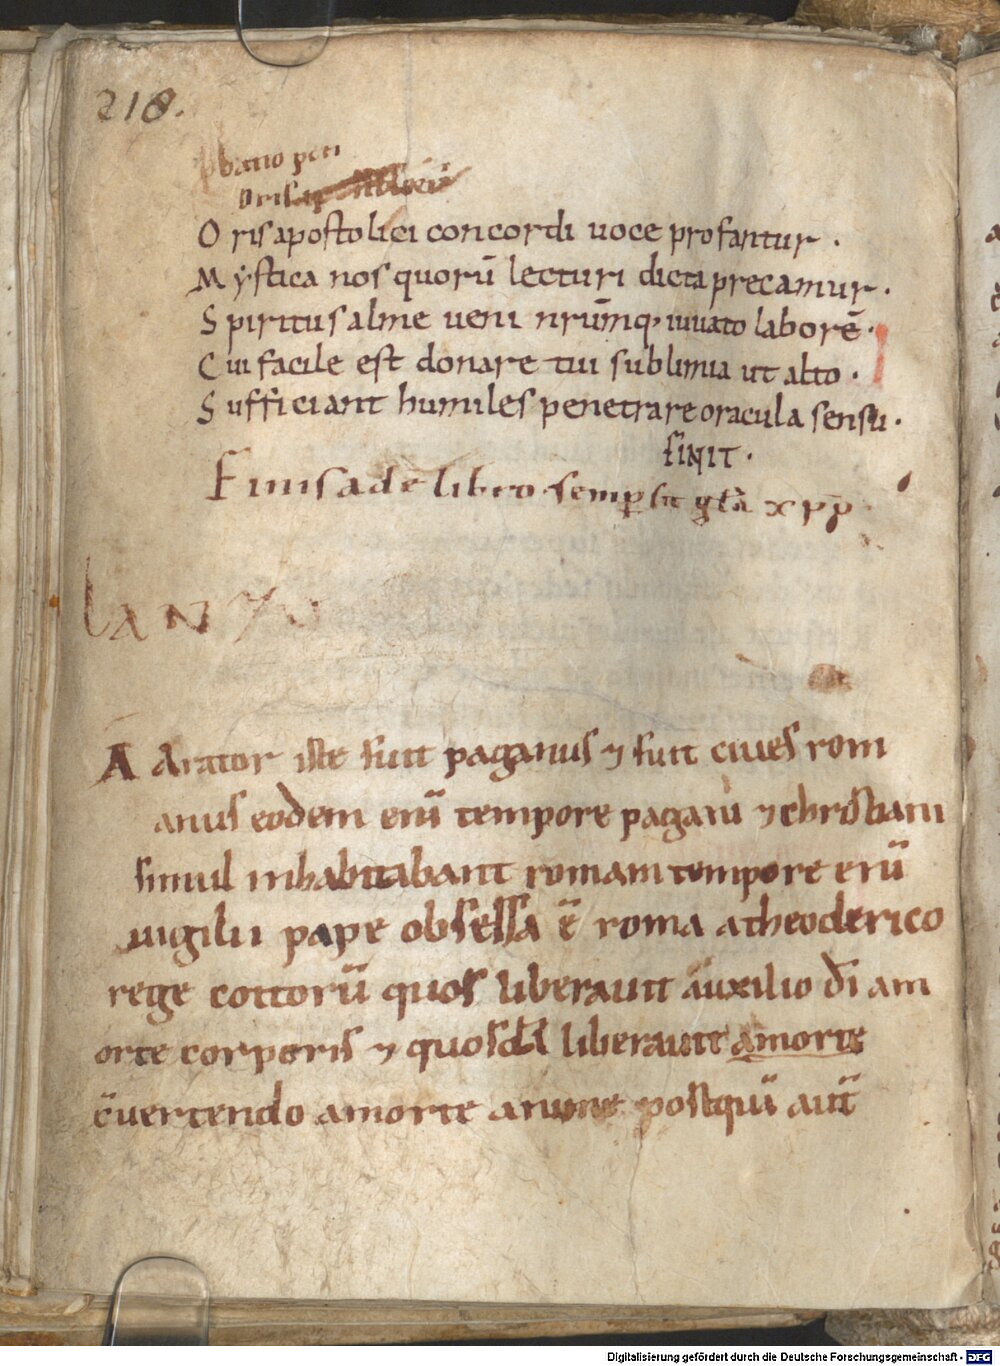 218.
pbatio pen
Oris
O ris apostolici concordi uoce profantur .
Mystica nos quorū lecturi dicta precamur .
S piritus alme ueni nrūmq; iuuato laborē .
C ui facile est donare tui sublimia ut alto .
S ufficiant humiles penetrare oracula sensu .
FINIT .
Finis adē libro semp sit gła xpp
A Arator iste fuit paganus ⁊ fuit ciues rom
anus eodem enī tempore pagani ⁊ christiani
simul inhabitabant romam tempore enī
uigilii pape obsessa ē roma a theoderico
rege cottorū quos liberauit auxilio dī am
orte corporis ⁊ quosdā liberauit amorte
c̄uertendo amorte postquū aut̄
Digitalisierung gefördert durch die Deutsche Forschungsgemeinschaft - DFG